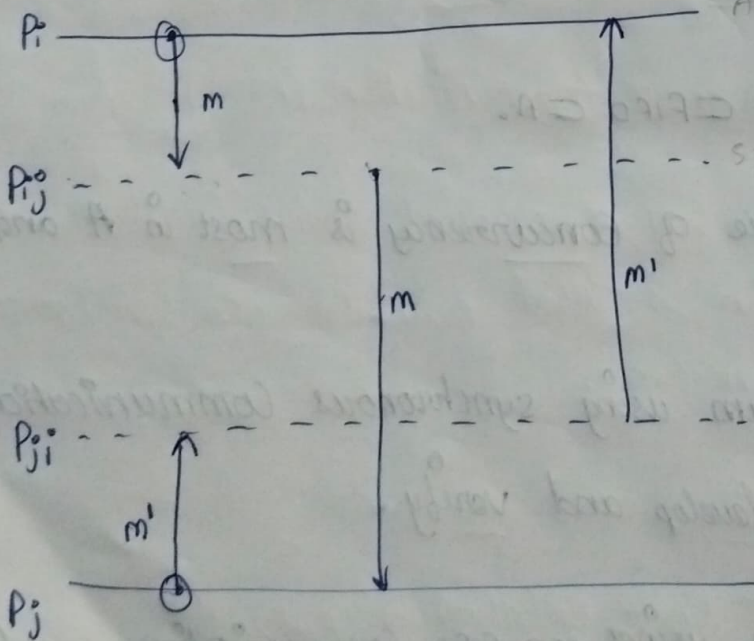 Pi
m
Pij
m
m'
Pji
m'
Pj